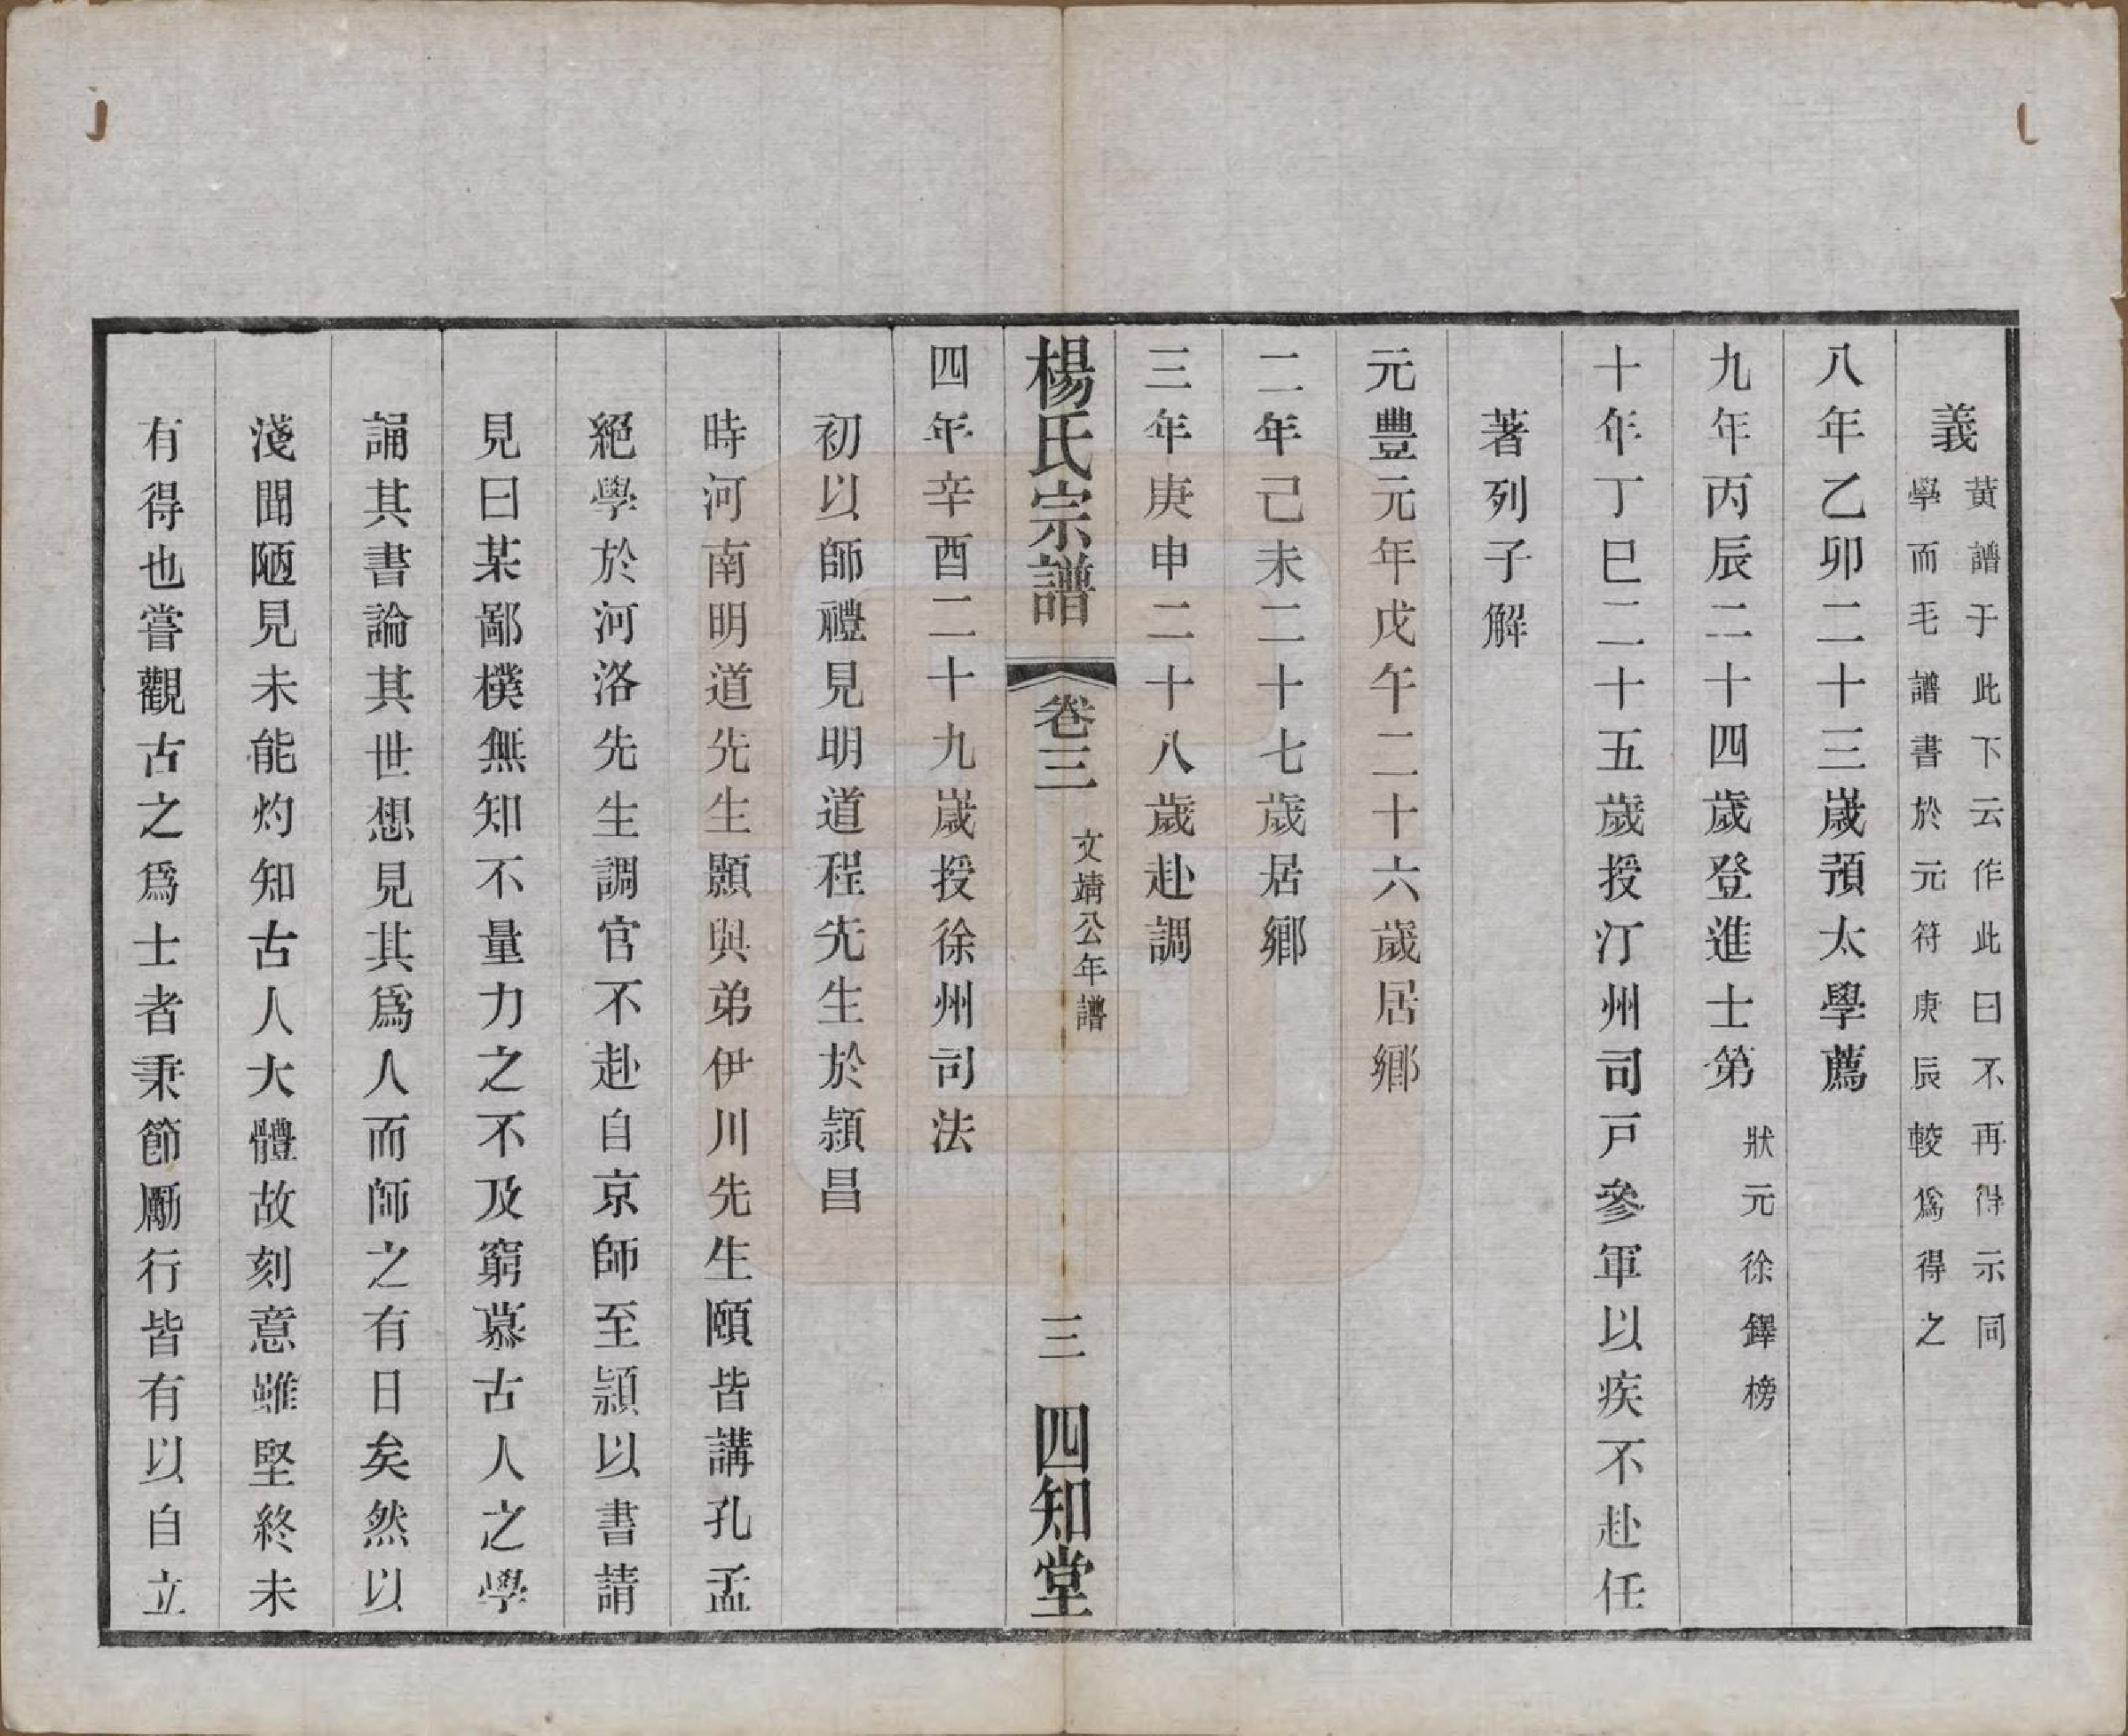 義
黃譜于此下云作此曰不再得示同
學而毛譜書於元符庚辰較爲得之
八年乙卯二十三歲預太學薦
九年丙辰二十四歲登進士第 狀元徐鐸榜
十年丁巳二十五歲授汀州司戸參軍以疾不赴任
著列子解
元豐元年戊午二十六歲居鄉
二年己未二十七歲居鄉
三年庚申二十八歲赴調
楊氏宗譜 卷三 文靖公年譜 三 四知堂
四年辛酉二十九歲授徐州司法
初以師禮見明道程先生於潁昌
時河南明道先生顥與弟伊川先生頤皆講孔孟
絕學於河洛先生調官不赴自京師至潁以書請
見曰某鄙樸無知不量力之不及窮慕古人之學
誦其書論其世想見其爲人而師之有日矣然以
淺聞陋見未能灼知古人大體故刻意雖堅終未
有得也嘗觀古之爲士者秉節勵行皆有以自立